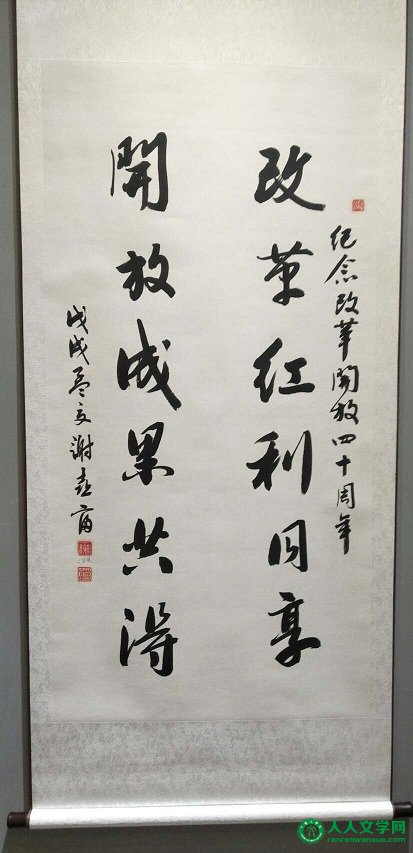 纪念改革開放四十周年
改革红利同享
開放成果共得
戊戌孟夏谢
人人文学网
renrenwenxue.com